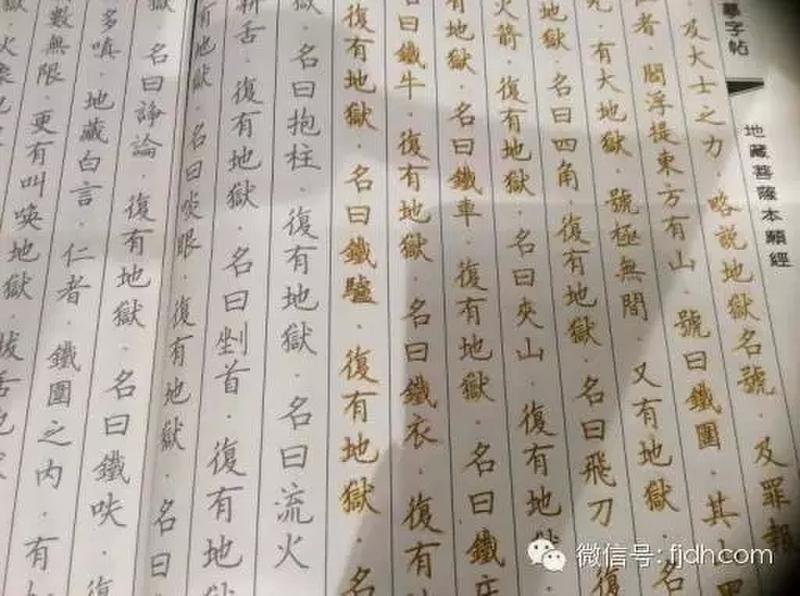 摹字帖
地藏菩薩本願經
及大士之力．略說地獄名號．及罪報
者．閻浮提東方有山．號曰鐵圍．其山
有大地獄．號極無間．又有地獄．名
地獄．名曰四角．復有地獄．名曰飛刀．復
火箭．復有地獄．名曰夾山．復有地獄
有地獄．名曰鐵車．復有地獄．名曰鐵床
名曰鐵牛．復有地獄．名曰鐵衣．復有
復有地獄．名曰鐵驢．復有地獄．名
名曰抱柱．復有地獄．名曰流火
耕舌．復有地獄．名曰剉首．復有地獄
有地獄．名曰啖眼．復有地獄．名曰
地獄．名曰諍論．復有地獄．名曰鐵鈇．復
多嗔．地藏白言．仁者．鐵圍之內．有如
數無限．更有叫喚地獄．拔舌地
火象地
微信号: fjdhcom